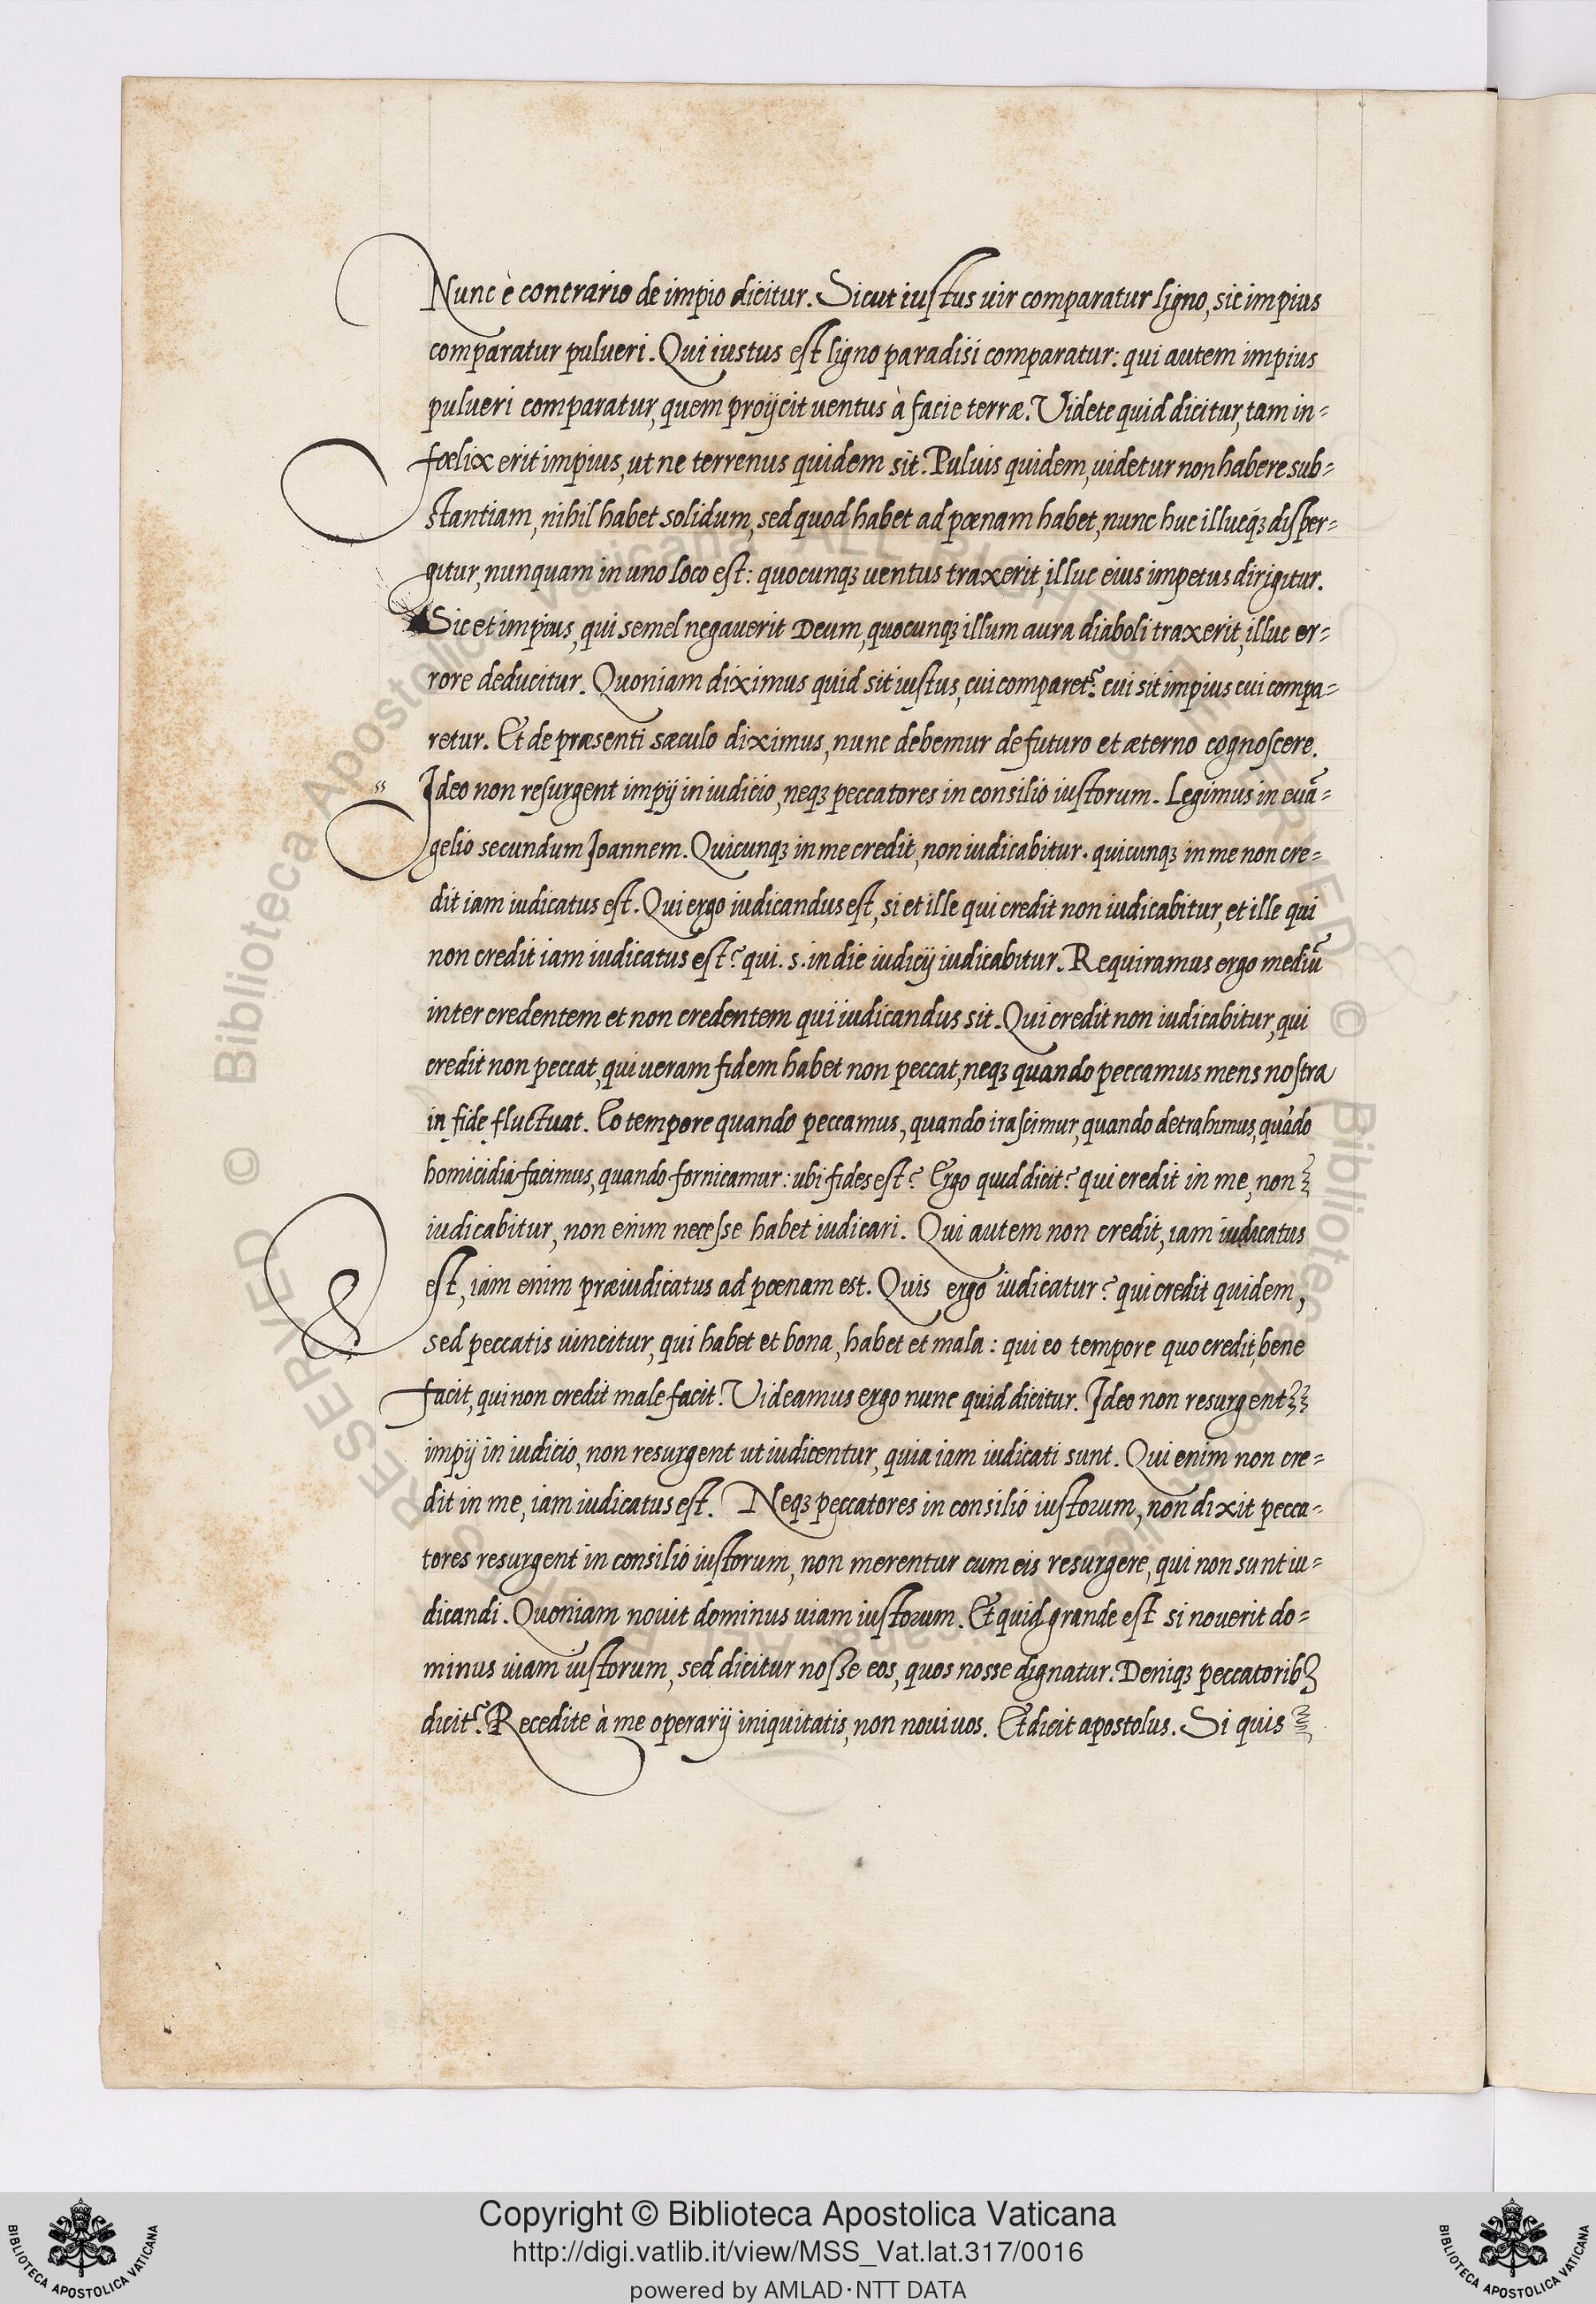 Nunc è contrario de impio dicitur. Sicut iustus uir comparatur ligno, sic impius
comparatur pulueri. Qui iustus est ligno paradisi comparatur: qui autem impius
pulueri comparatur, quem proijcit uentus à facie terræ. Videte quid dicitur, tam in=
fœlix erit impius, ut ne terrenus quidem sit. Puluis quidem, uidetur non habere sub=
stantiam, nihil habet solidum, sed quod habet ad pœnam habet, nunc huc illucq́ꝫ disper=
gitur, nunquam in uno loco est: quocunqꝫ uentus traxerit, illuc eius impetus dirigitur.
Sic et impius, qui semel negauerit Deum, quocunqꝫ illum aura diaboli traxerit, illuc er=
rore deducitur. Quoniam diximus quid sit iustus, cui comparet᷑: cui sit impius cui compa=
retur. Et de præsenti sæculo diximus, nunc debemur de futuro et æterno cognoscere.
" Ideo non resurgent impij in iudicio, neqꝫ peccatores in consilio iustorum. Legimus in euã=
gelio secundum Joannem. Quicunqꝫ in me credit, non iudicabitur. quicunqꝫ in me non cre=
dit iam iudicatus est. Qui ergo iudicandus est, si et ille qui credit non iudicabitur, et ille qui
non credit iam iudicatus est? qui. s. in die iudicij iudicabitur. Requiramus ergo mediũ
inter credentem et non credentem qui iudicandus sit. Qui credit non iudicabitur, qui
credit non peccat, qui ueram fidem habet non peccat, neqꝫ quando peccamus mens nostra
in fide fluctuat. Eo tempore quando peccamus, quando irascimur, quando detrahimus, quãdo
homicidia facimus, quando fornicamur: ubi fides est? Ergo quid dicit? qui credit in me, non
iudicabitur, non enim necesse habet iudicari. Qui autem non credit, iam iudicatus
est, iam enim præiudicatus ad pœnam est. Quis ergo iudicatur? qui credit quidem,
sed peccatis uincitur, qui habet et bona, habet et mala: qui eo tempore quo credit, bene
facit, qui non credit male facit. Videamus ergo nunc quid dicitur. Ideo non resurgent
impij in iudicio, non resurgent ut iudicentur, quia iam iudicati sunt. Qui enim non cre=
dit in me, iam iudicatus est. Neqꝫ peccatores in consilio iustorum, non dixit pecca=
tores resurgent in consilio iustorum, non merentur cum eis resurgere, qui non sunt iu=
dicandi. Quoniam nouit dominus uiam iustorum. Et quid grande est si nouerit do=
minus uiam iustorum, sed dicitur nosse eos, quos nosse dignatur. Deniqꝫ peccatoribꝫ
dicit᷑. Recedite à me operarij iniquitatis, non noui uos. Et dicit apostolus. Si quis
© Biblioteca Apostolica Vaticana ALL RIGHTS RESERVED © Biblioteca Apostolica Vaticana ALL RIGHTS RESERVED
Copyright © Biblioteca Apostolica Vaticana
http://digi.vatlib.it/view/MSS_Vat.lat.317/0016
powered by AMLAD·NTT DATA
BIBLIOTECA APOSTOLICA VATICANA
BIBLIOTECA APOSTOLICA VATICANA